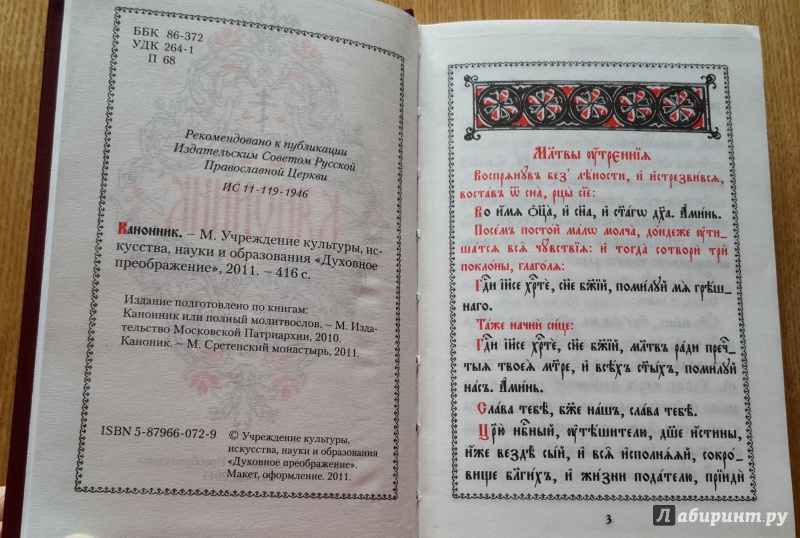 ББК 86-372
УДК 264-1
П 68
Рекомендовано к публикации
Издательским Советом Русской
Православной Церкви
ИС 11-119-1946
Канонник. – М. Учреждение культуры, ис-
кусства, науки и образования «Духовное
преображение», 2011. – 416 с.
Издание подготовлено по книгам:
Канонник или полный молитвослов. – М. Изда-
тельство Московской Патриархии, 2010.
Каноник. – М. Сретенский монастырь, 2011.
ISBN 5-87966-072-9
© Учреждение культуры,
искусства, науки и образования
«Духовное преображение».
Макет, оформление. 2011.
Мл҃твы ᲂу҆́трєннїѧ
Воспрѧнꙋ́въ без̾ лѣ́ности, и҆ и҆стрезви́всѧ,
воста́въ ѿ сна̀, рцы̀ сїѐ:
Во и҆́мѧ ѻ҆ц҃а̀, и҆ сн҃а, и҆ ст҃а́гѡ дх҃а. А҆ми́нь.
Посе́мъ посто́й ма́лѡ мо́лча, до́ндеже ᲂу҆ти-
ша́тсѧ всѧ̑ чꙋ̑вствїѧ: и҆ тогда̀ сотворѝ трѝ
покло́ны, глаго́лѧ:
Гдⷭ҇и і҆и҃се хрⷭ҇тѐ, сн҃е бж҃їй, поми́лꙋй мѧ̀ грѣ́ш_
наго.
Та́же начнѝ си́це:
Гдⷭ҇и і҆и҃се хрⷭ҇тѐ, сн҃е бж҃їй, мл҃твъ ра́ди пречⷭ҇_
тыѧ твоеѧ̀ мт҃ре, и҆ всѣ́хъ ст҃ы́хъ, поми́лꙋй
на́съ. А҆ми́нь.
Сла́ва тебѣ̀, бж҃е на́шъ, сла́ва тебѣ̀.
Цр҃ю̀ нбⷭ҇ный, ᲂу҆тѣ́шителю, дш҃е и҆́стины,
и҆́же вездѣ̀ сы́й, и҆ всѧ̑ и҆сполнѧ́ѧй, сокро́_
вище бл҃ги́хъ, и҆ жи́зни пода́телю, прїидѝ
3
Лабиринт.ру